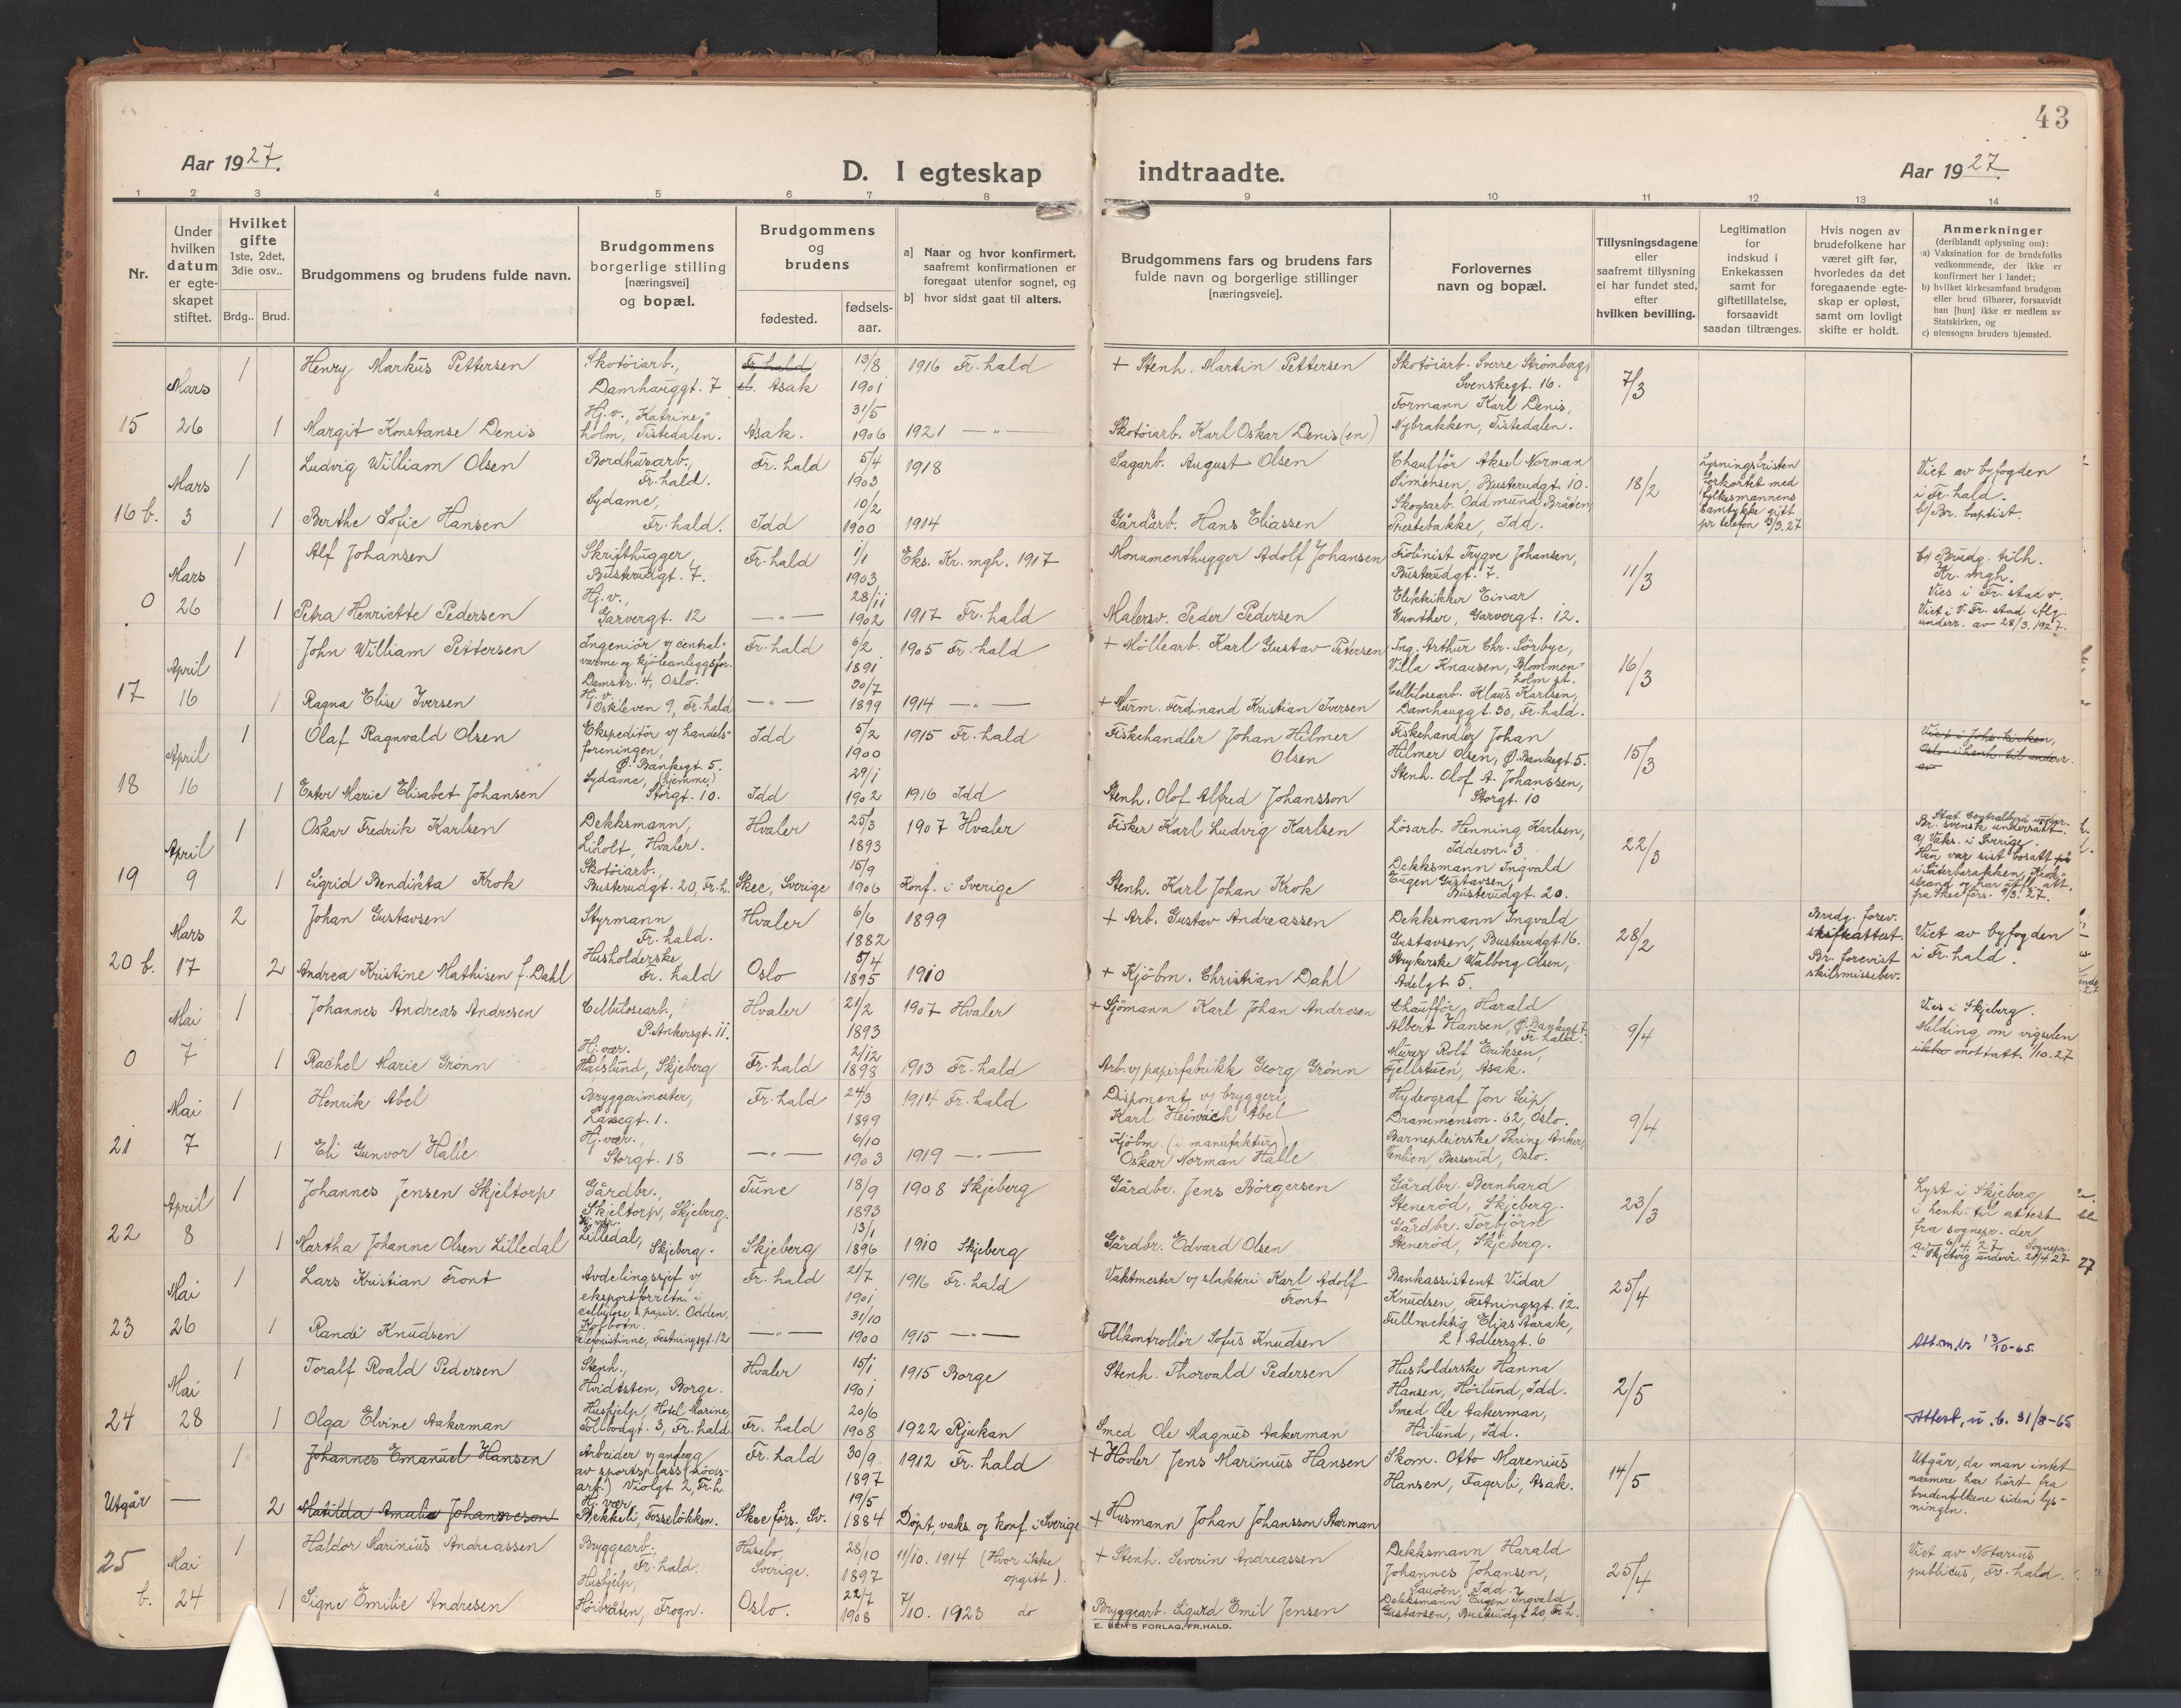 43
Aar 1927.
D. I egteskap indtraadte.
Aar 1927.
1 2 3 4 5 6 7 8 9 10 11 12 13 14
Nr.
Under hvilken datum er egte-skapet stiftet.
Hvilket gifte 1ste, 2det, 3die osv..
Brdg.. Brud.
Brudgommens og brudens fulde navn.
Brudgommens borgerlige stilling [næringsvei] og bopæl.
Brudgommens og brudens
fødested.
fødsels-aar.
a) Naar og hvor konfirmert, saafremt konfirmationen er foregaat utenfor sognet, og
b) hvor sidst gaat til alters.
Brudgommens fars og brudens fars fulde navn og borgerlige stillinger [næringsveie].
Forlovernes navn og bopæl.
Tillysningsdagene eller saafremt tillysning ei har fundet sted, efter hvilken bevilling.
Legitimation for indskud i Enkekassen samt for giftetillatelse, forsaavidt saadan tiltrænges.
Hvis nogen av brudefolkene har været gift før, hvorledes da det foregaaende egte-skap er opløst, samt om lovligt skifte er holdt.
Anmerkninger (deriblandt oplysning om):
a) Vaksination for de brudefolks vedkommende, der ikke er konfirmert her i landet;
b) hvilket kirkesamfund brudgom eller brud tilhører, forsaavidt han [hun] ikke er medlem av Statskirken, og
c) utensogns bruders hjemsted.
15 Mars 26
1 Henry Markus Pettersen Skotöiarb., Damhauggt. 7 Fr.hald Asak 13/8 1901 1916 Fr.hald + Stenh. Martin Pettersen Skotöiarb. Sverre Strömberg, Svenskegt. 16. 7/3
1 Margit Konstanse Denis Hj.v., Katrineholm, Tistedalen. Asak. 31/5 1906 1921 — " — Skotöiarb. Karl Oskar Denis(en) Formann Karl Denis, Nybrakken, Tistedalen.
16 b. Mars 3
1 Ludvig William Olsen Bordhusarb., Fr.hald. Fr.hald 5/4 1903 1918 Sagarb. August Olsen Chaufför Aksel Norman Simensen, Busterudgt. 10. 18/2 Lysningsfristen forkortet med fylkesmannens samtykke gitt pr telefon 3/3.27 Viet av byfogden i Fr.hald. b/ Br. baptist.
1 Berthe Sofie Hansen Sydame, Fr.hald. Idd 10/2 1900 1914 Gårdarb. Hans Eliassen Skogsarb. Oddmund Bråten, Prestebakke, Idd.
0 Mars 26
1 Alf Johansen Skrifthugger, Busterudgt. 7. Fr.hald 1/1 1903 Eks. Kr. mgh. 1917 Monumenthugger Adolf Johansen Fiolinist Trygve Johansen, Busterudgt. 7. 11/3 b/ Brudg. tilh. Kr. mgh. Vies i Fr.stad v. Viet i V. Fr.stad iflg. underr. av 28/3.1927.
1 Petra Henriette Pedersen Hj.v., Garvergt. 12 — " — 28/11 1902 1917 Fr.hald Malersv. Peder Pedersen Elektrikker Einar Gunther, Garvergt. 12.
17 April 16
1 John William Pettersen Ingeniör v/ sentralvarme og kjöleanleggsfor. Damstr. 4, Oslo. Fr.hald 6/2 1891 1905 Fr.hald + Möllearb. Karl Gustav Petersen Ing. Arthur Chr. Sörbye, Villa Knausen, Blommenholm st. 16/3
1 Ragna Elise Iversen Hj.v. Oskleven 9, Fr.hald — " — 30/7 1899 1914 — " — + Murm. Ferdinand Kristian Iversen Cellulosearb. Klaus Karlsen, Damhauggt. 30, Fr.hald.
18 April 16
1 Olaf Ragnvald Olsen Ekspeditör v/ handelsforeningen, Ø. Bankegt. 5. Idd 5/2 1900 1915 Fr.hald Fiskehandler Johan Hilmer Olsen Fiskehandler Johan Hilmer Olsen, Ø. Bankegt. 5. 15/3 Viet i Johs. kirken, Oslo i henh. til under. av
1 Ester Marie Elisabet Johansen Sydame, (hjemme) Storgt. 10. Idd 29/1 1902 1916 Idd Stenh. Olof Alfred Johansson Stenh. Olof A. Johanssen, Storgt. 10
19 April 9
1 Oskar Fredrik Karlsen Dekksmann, Liholt, Hvaler. Hvaler 25/3 1893 1907 Hvaler Fisker Karl Ludvig Karlsen Lösarb. Henning Karlsen, Iddevn. 3 22/3 Br. svensk undersått. a/ Vaks. i Sverige. Hun var sist bosatt i Säterbarakken, Krokstrand og har utfl. att. fra Skee förs. 9/3. 27.
1 Sigrid Bendikta Krok Skotöiarb., Busterudgt. 20, Fr.h. Skee, Sverige 15/9 1906 Konf. i Sverige Stenh. Karl Johan Krok Dekksmann Ingvald Eugen Gustavsen, Busterudgt. 20.
20 b. Mars 17
2 Johan Gustavsen Styrmann Fr.hald. Hvaler 6/6 1882 1899 + Arb. Gustav Andreassen Dekksmann Ingvald Gustavsen, Busterudgt 16. 28/2 Brudg. forev. skifteattest. Br. forevist skilsmissebev. Viet av byfogden i Fr.hald.
2 Andrea Kristine Mathisen f. Dahl Husholderske Fr.hald Oslo 5/4 1895 1910 + Kjöbm. Christian Dahl Strykerske Walborg Olsen, Adelgt 5.
0 Mai 7
1 Johannes Andreas Andresen Cellulosearb., P. Ankersgt. 11. Hvaler 21/2 1893 1907 Hvaler + Sjömann Karl Johan Andresen Chaufför Harald Albert Hansen, Ø. Bankegt. 7, Fr.hald. 9/4 Vies i Skjeberg. Melding om vigselen ikke mottatt 1/10.27
1 Rachel Marie Grönn Hj.vær. Hafslund, Skjeberg Fr.hald 2/12 1898 1913 Fr.hald Arb. v/ papirfabrikk Georg Grönn Murer Rolf Eriksen, Fjellstuen, Asak.
21 Mai 7
1 Henrik Abel Bryggerimester, Låsegt. 1. Fr.hald 24/3 1899 1914 Fr.hald Disponent v/ bryggeri, Karl Heinrich Abel Hydrograf Jon Seip, Drammensvn. 62, Oslo. 9/4
1 Eli Gunvor Halle Hj.vær., Storgt. 18 — " — 6/10 1903 1919 — " — Kjöbm. (i manufaktur) Oskar Norman Halle Barnepleierske Thrine Anker, Venlien, Besserud, Oslo.
22 April 8
1 Johannes Jensen Skjeltorp Gårdbr., Skjeltorp, Skjeberg. Tune 18/9 1893 1908 Skjeberg Gårdbr. Jens Börgersen Gårdbr. Bernhard Steneröd, Skjeberg. 23/3 Lyst i Skjeberg i henh. til attest fra sognepr. der av 6/4 27 Sognepr. i Skjeberg underr. 21/4 27
1 Martha Johanne Olsen Lilledal Hj.vær. Lilledal, Skjeberg. Skjeberg 13/1 1896 1910 Skjeberg Gårdbr. Edvard Olsen Gårdbr. Torbjörn Steneröd, Skjeberg.
23 Mai 26
1 Lars Kristian Front Avdelingssjef v/ eksportforretn. i cellulose & papir. Odden, Kolbotn. Fr.hald 21/7 1901 1916 Fr.hald Vaktmester v/ slakteri Karl Adolf Front Bankassistent Vidar Knudsen, Festningsgt. 12. 25/4
1 Randi Knudsen Telefonistinne, Festningsgt. 12 — " — 31/10 1900 1915 — " — Tollkontrollör Sofus Knudsen Fullmektig Elias Aarak, L. Adlersgt. 6 13/10-65.
24 Mai 28
1 Toralf Roald Pedersen Stenh., Hvidsten, Borge. Hvaler 15/1 1901 1915 Borge Stenh. Thorvald Pedersen Husholderske Hanna Hansen, Höilund, Idd. 2/5
1 Olga Elvine Aakerman Hushjelp, Hotel Marine, Tollbodgt. 3, Fr.hald. Fr.hald 20/6 1908 1922 Rjukan Smed Ole Magnus Aakerman Smed Ole Aakerman, Höilund, Idd. Attest. u. b. 31/8-65
Utgår —
1 Johannes Emanuel Hansen Arbeider v/ anlegg av sportsplass (nödsarb.) Violgt 2, Fr.h. Fr.hald 30/9 1897 1912 Fr.hald + Hovler Jens Marinius Hansen Skom. Otto Marenius Hansen, Fagerli, Asak. 14/5 Utgår, da man intet nærmere har hört fra brudefolkene siden lysningen.
2 Matilda Amalia Johanneson Hj. vær Bekkeli, Fosselökken. Skee förs., Sv. 19/5 1884 Döpt, vaks. og konf. i Sverige + Husmann Johan Johansson Starman
25 b. Mai 24
1 Haldor Marinius Andreassen Bryggearb., Fr.hald. Husebo, Sverige. 28/10 1897 11/10. 1914 (Hvor ikke opgitt). + Stenh. Severin Andreassen Dekksmann Harald Johannes Johansen, Sauöen, Idd. 25/4 Viet av Notarius publicus, Fr.hald.
1 Signe Emilie Andresen Hushjelp, Höibråten, Frogn. Oslo. 22/7 1908 7/10. 1923 do Bryggearb. Sigurd Emil Jensen Dekksmann Eugen Ingvald Gustavsen, Busterudgt 20, Fr.h.
E. SEM'S FORLAG, FR.HALD.